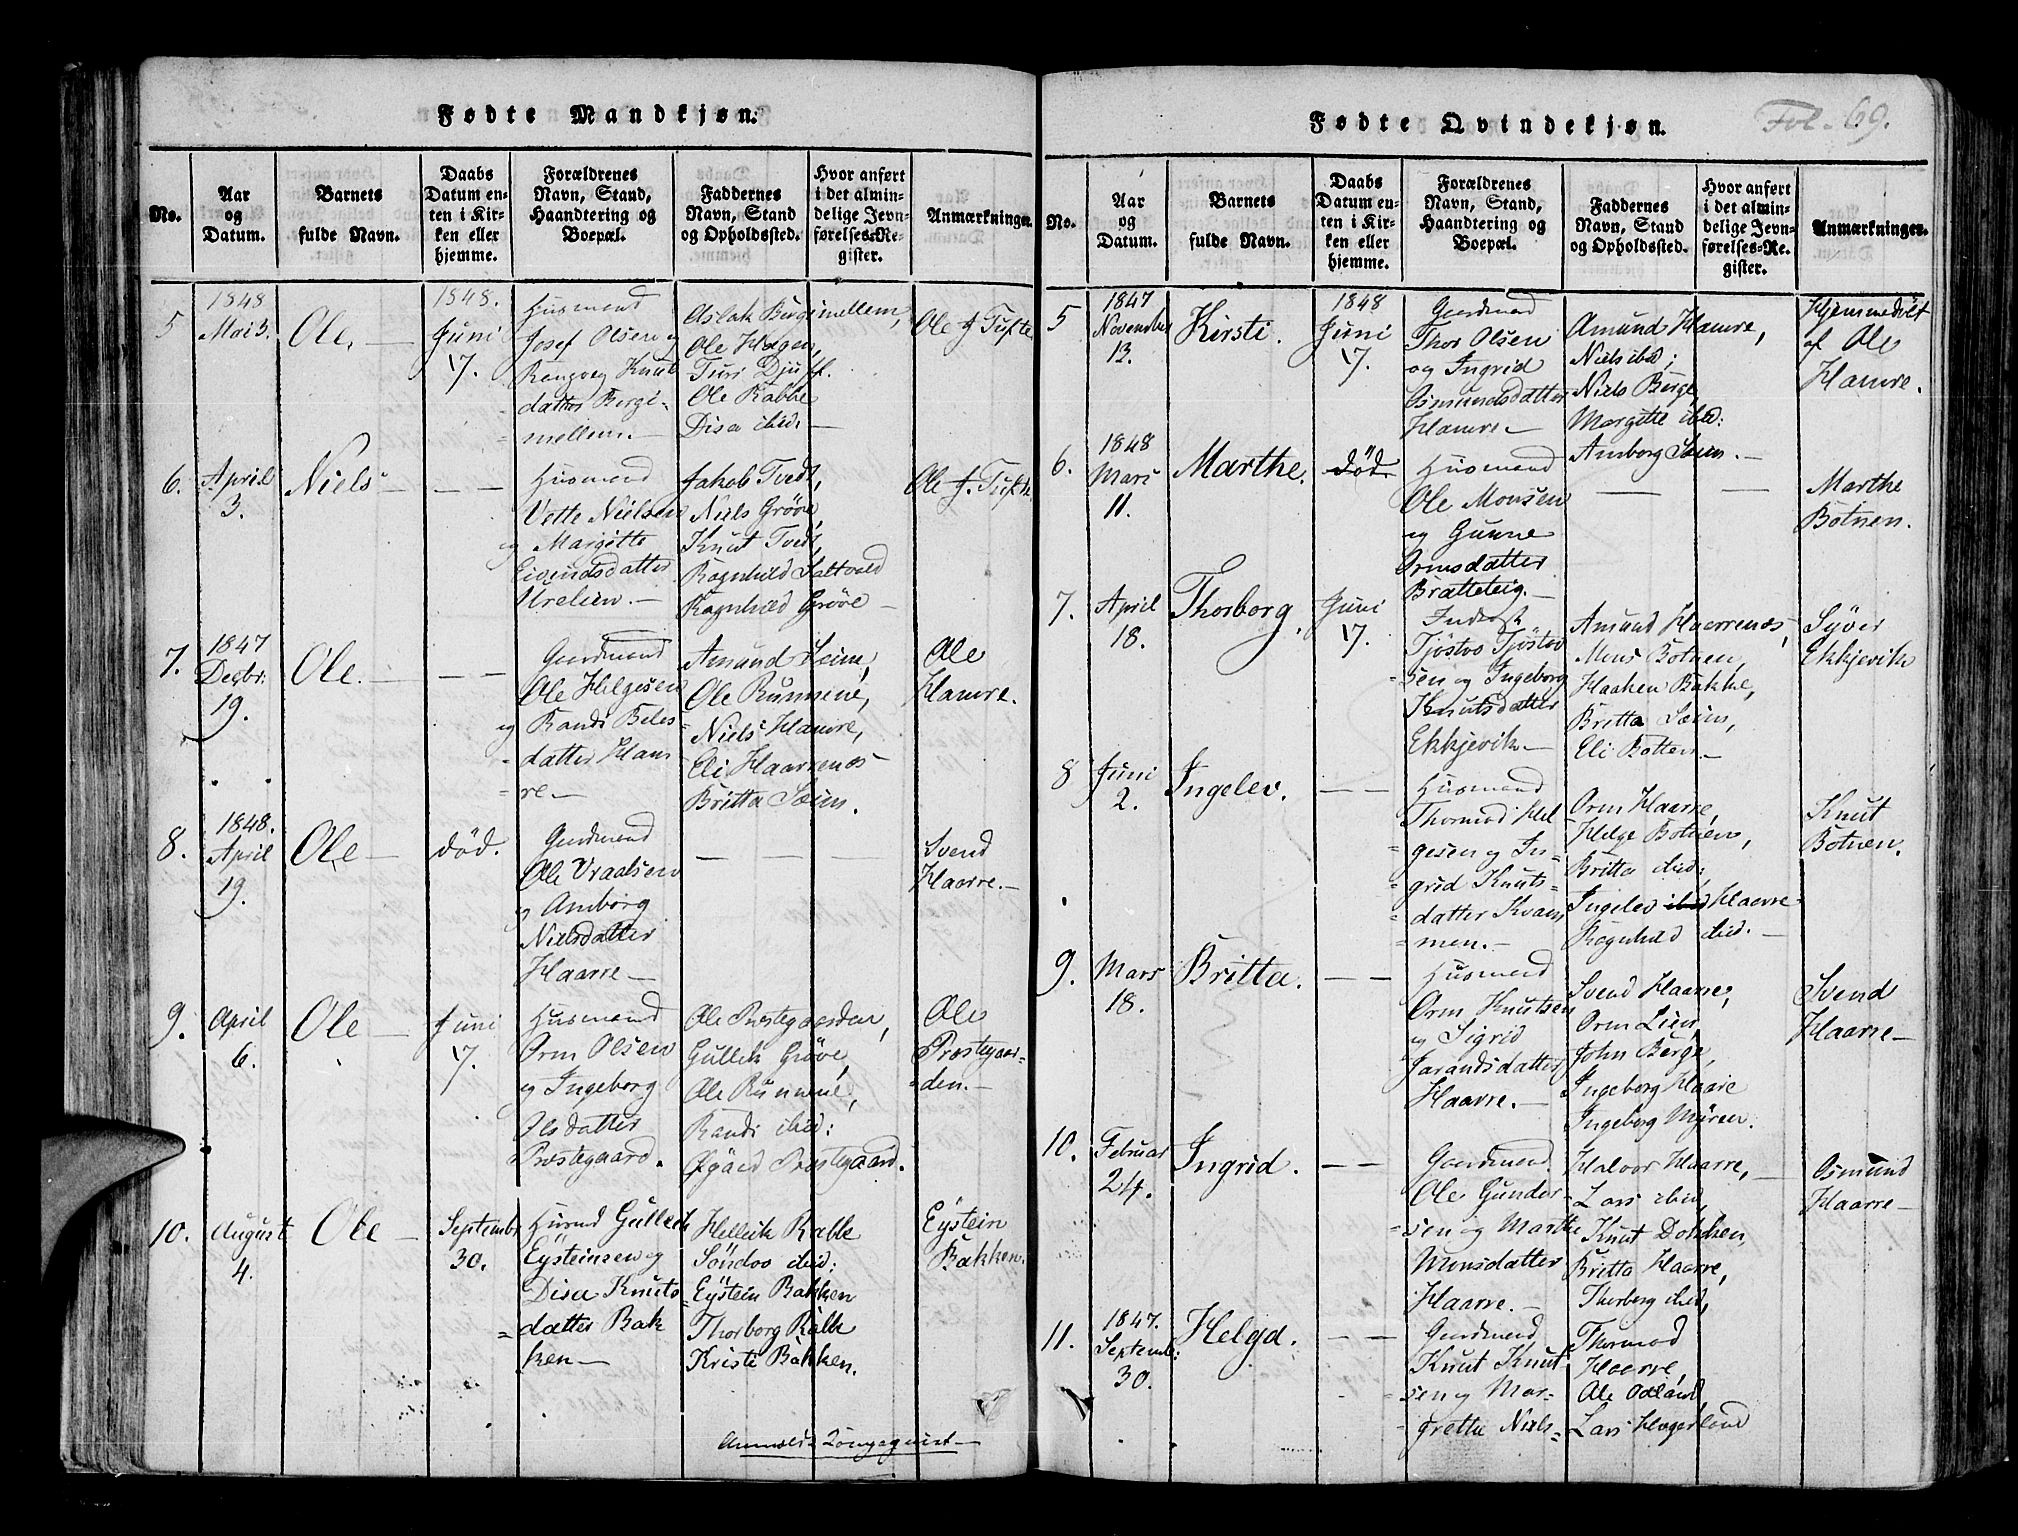 Fødte Mandkjøn.
No.
Aar
og
Datum.
Barnets
fulde Navn.
Daabs
Datum en-
ten i Kir-
ken eller
hjemme.
Forældrenes
Navn, Stand,
Haandtering og
Boepæl.
Faddernes
Navn, Stand
og Opholdssted.
Hvor anført
i det almin-
delige Jevn-
førelses-Re-
gister.
Anmærkninger.
5
1848
Mai 3.
Ole. —
1848.
Juni
17.
Husmand
Josef Olsen og
Rangveg Knuts
datter Bergi-
= mellem. —
Aslak Bergimellem,
Ole Hagen,
Turi Djuf.
Ole Rabbe
Disa ibid. —
Ole J. Tufte
6.
April
3.
Niels —
— —
Husmand
Vette Nielsen
og Margitte
Eivindsdatter
Urelien. —
Jakob Tvedt,
Niels Grøve,
Knut Tvedt,
Ragnhild Saltvold
Ragnhild Grøve —
Ole J. Tufte
7.
1847
Decbr.
19.
Ole. —
— —
Gaardmand
Ole Helgesen
og Randi Eeles
= datter Ham
= re —
Amund Seim,
Ole Rumme,
Niels Hamre,
Eli Haarrenes —
Britta Seim.
Ole
Hamre.
8.
1848.
April
19.
Ole —
død.
Gaardmand
Ole Vraalsen
og Amborg
Nielsdatter
Haarre —
— — —
Svend
Haarre. —
9.
April
6.
Ole —
Juni
17.
Husmand
Orm Olsen
og Ingeborg
Olsdatter
Prestegaard.
Ole Prostegaarden,
Gullik Grøve,
Ole Rumme,
Randi ibid:
Øgaed Prostegaard.
Ole
Prostegaar-
= den. —
10.
August
4.
Ole —
September
30.
Husmd Gullik
Eysteinsen og
Disa Knuts
= datter Bak
ken —
Hellik Rabbe
Söndov ibid:
Eystein Bakken
Thorborg Rabbe
Kristi Bakken.
Eystein
Bakken.
Fødte Qvindekjøn.
Fol. 69.
No.
Aar
og
Datum.
Barnets
fulde Navn.
Daabs
Datum en-
ten i Kir-
ken eller
hjemme.
Forældrenes
Navn, Stand,
Haandtering og
Boepæl.
Faddernes
Navn, Stand
og Opholdssted.
Hvor anført
i det almin-
delige Jevn-
førelses-Re-
gister.
Anmærkninger.
5
1847
November
13.
Kirsti.
1848
Juni
17.
Gaardmand
Thor Olsen
og Ingrid
Osmundsdatter
Hamre —
Amund Hamre,
Niels ibid;
Niels Berge,
Margitte ibid:
Amborg Seim. —
Hjemmedöbt
af Ole
Hamre.
6.
1848
Mars
11.
Marthe.
død
Husmand
Ole Monsen
og Gunne
Ormsdatter
Bratteteig. —
— — —
Marthe
Botnen.
7.
April
18.
Thorborg.
Juni
17.
Inderst
Tjöstov Tjöstov
= sen og Ingeborg
Knutsdatter
Ekkjevik —
Amund Haarrenes,
Mons Botnen,
Haaken Bakke,
Britta Seim,
Eli Botten —
Syver
Ekkjevik
8
Juni
2.
Ingelev.
— —
Husmand
Thormod Hel
= gesen og In-
= grid Knuts-
= datter Kvam
= men. —
Orm Haarre,
Helge Botnen,
Britta ibid:
Ingelev ibid Haarre
Ragnhild ibid. —
Knut
Botnen.
9.
Mars
18.
Britta.
— —
Husmand
Orm Knutsen
og Sigrid
Jarandsdatter
Haavre. —
Svend Haarre,
Orm Lien,
John Berge,
Ingeborg Haare
Ingeborg Myren.
Svend
Haarre —
10.
Februar
24.
Ingrid.
— —
Gaardmand
Ole Gunder-
= sen og Marthe
Monsdatter
Haarre. —
Halvor Haarre, —
Lars ibid,
Knut Dokken,
Britta Haarre,
Thorborg ibid,
Osmund
Haarre —
11.
1847.
Septemb:
30.
Helgd.
— —
Gaardmand
Knut Knut-
sen og Mar-
= grette Niels-
Thormod
Haarre,
Ole Odland
Lars Hægerland